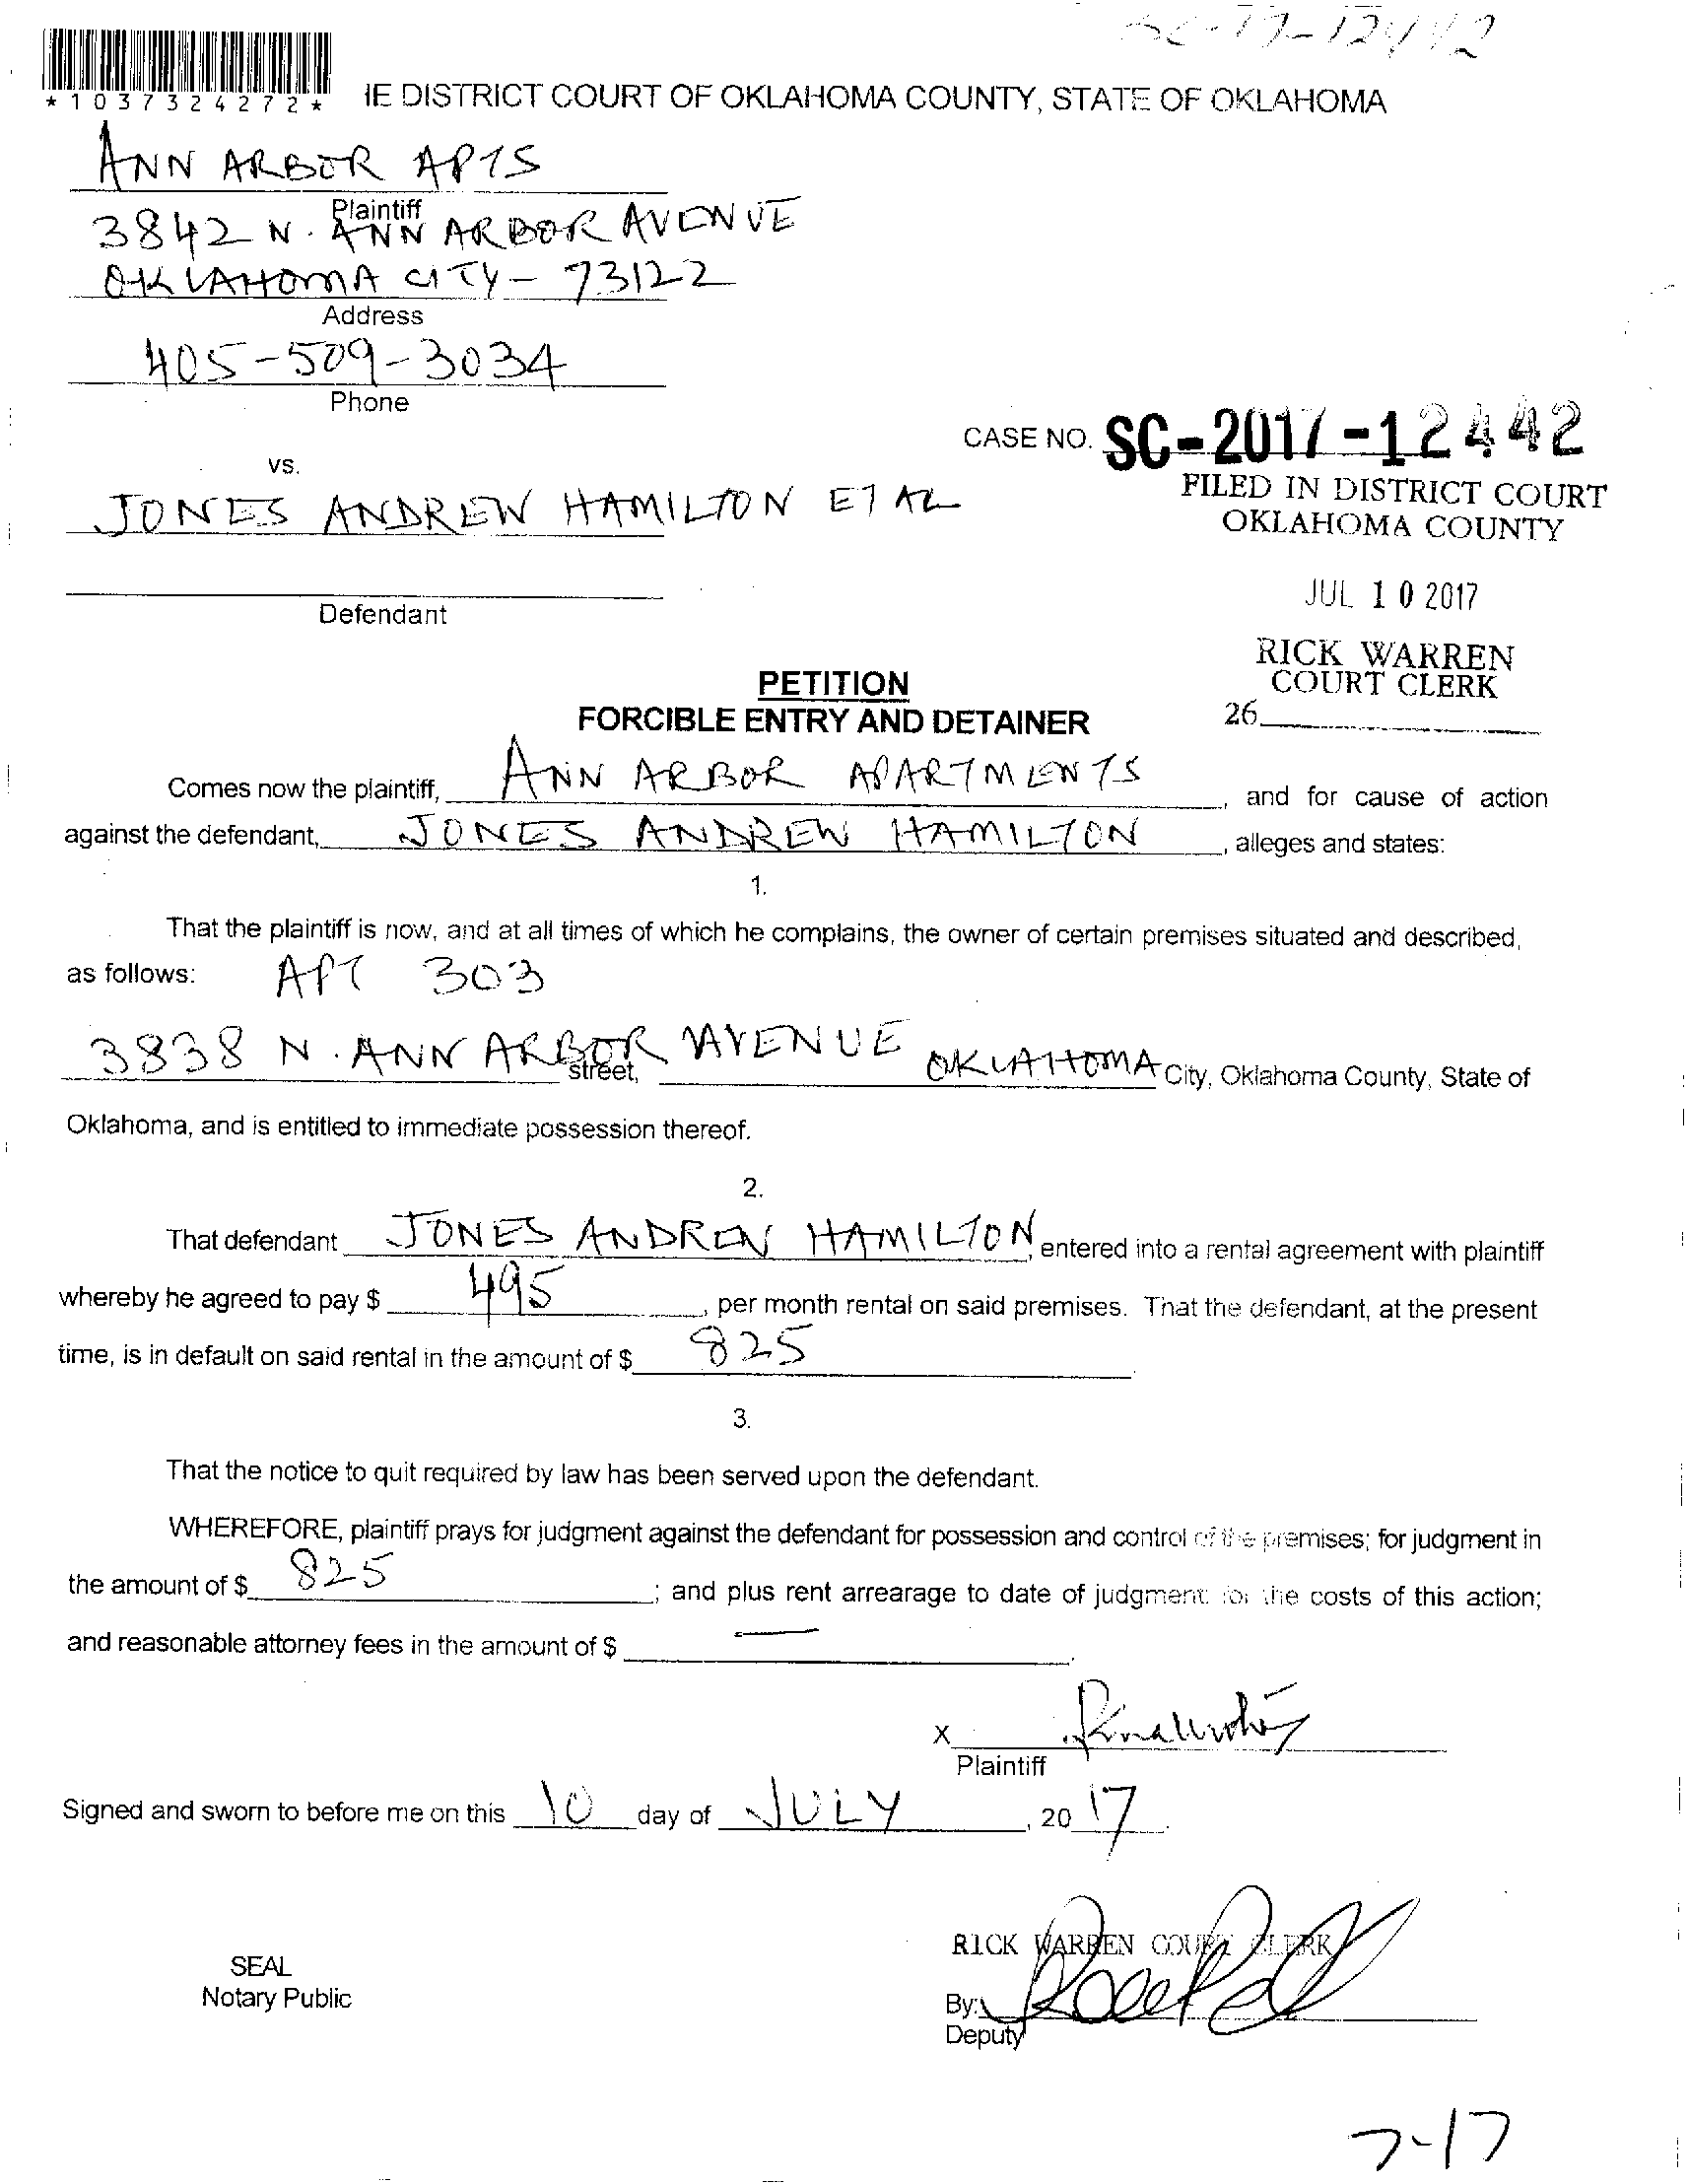 SC-17-12442
*1037324272*
IE DISTRICT COURT OF OKLAHOMA COUNTY, STATE OF OKLAHOMA
ANN ARBOR APTS
Plaintiff
3842 N. ANN ARBOR AVENUE
OKLAHOMA CITY - 73122
Address
405-509-3034
Phone
CASE NO. SC-2017-12442
vs.
FILED IN DISTRICT COURT
OKLAHOMA COUNTY
JONES ANDREW HAMILTON ET AL
JUL 10 2017
Defendant
RICK WARREN
COURT CLERK
26
PETITION
FORCIBLE ENTRY AND DETAINER
Comes now the plaintiff, ANN ARBOR APARTMENTS, and for cause of action
against the defendant, JONES ANDREW HAMILTON, alleges and states:
1.
That the plaintiff is now, and at all times of which he complains, the owner of certain premises situated and described,
as follows: APT 303
3838 N. ANN ARBOR AVENUE street, OKLAHOMA City, Oklahoma County, State of
Oklahoma, and is entitled to immediate possession thereof.
2.
That defendant JONES ANDREW HAMILTON, entered into a rental agreement with plaintiff
whereby he agreed to pay $ 495, per month rental on said premises. That the defendant, at the present
time, is in default on said rental in the amount of $ 825.
3.
That the notice to quit required by law has been served upon the defendant.
WHEREFORE, plaintiff prays for judgment against the defendant for possession and control of the premises; for judgment in
the amount of $ 825; and plus rent arrearage to date of judgment: for the costs of this action;
and reasonable attorney fees in the amount of $ —.
X
Plaintiff
Signed and sworn to before me on this 10 day of JULY, 20 17.
RICK WARREN COURT CLERK
SEAL
Notary Public
By:
Deputy
7-17